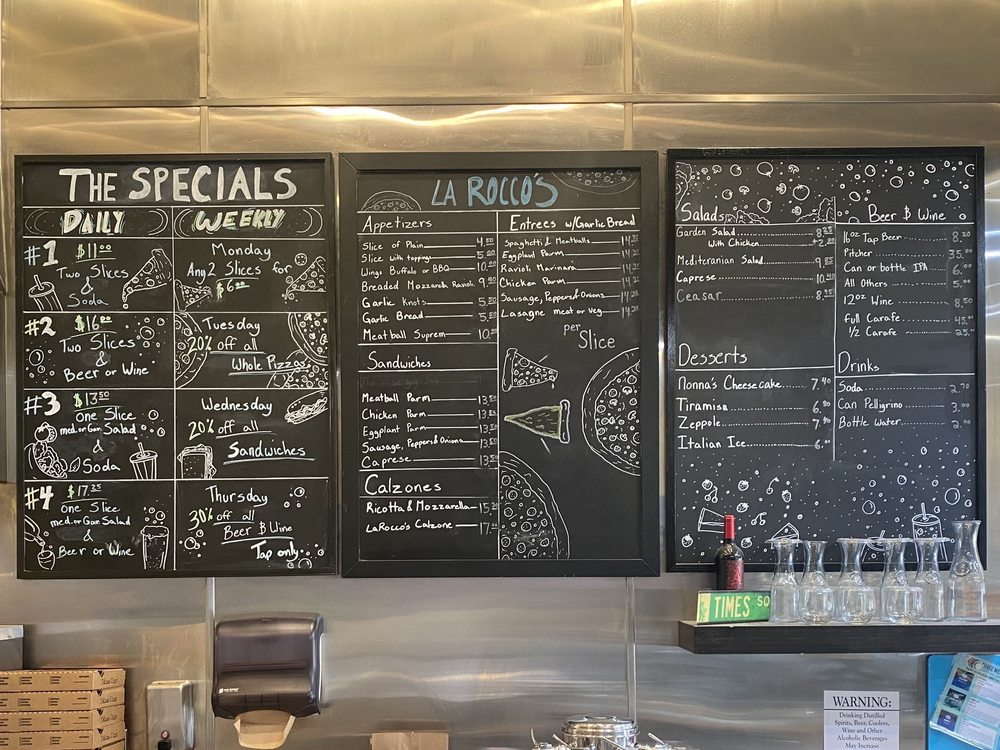 THE SPECIALS
DAILY
WEEKLY
#1 $11.00
Two Slices
&
Soda
#2 $16.00
Two Slices
&
Beer or Wine
#3 $13.50
One Slice
med. or Gar. Salad
&
Soda
#4 $17.25
One Slice
med. or Gar. Salad
&
Beer or Wine
Monday
Any 2 Slices for
$6.00
Tuesday
20% off all
Whole Pizzas
Wednesday
20% off all
Sandwiches
Thursday
30% off all
Beer & Wine
Tap only
LA ROCCO'S
Appetizers
Slice of Plain 4.50
Slice with topping
Wings Buffalo or BBQ 10.00
Breaded Mozzarella Raviolis
Garlic Knots
Garlic Bread
Meatball Suprem
Sandwiches
Meatball Parm
Chicken Parm
Eggplant Parm
Sausage, Peppers & Onions
Caprese
Calzones
Ricotta & Mozzarella
LaRocco's Calzone
Entrees w/Garlic Bread
Spaghetti & Meatballs
Eggplant Parm
Ravioli Marinara
Chicken Parm
Sausage, Peppers & Onions
Lasagne meat or veg
per
Slice
Salads
Garden Salad
With Chicken
Mediteranian Salad
Caprese
Ceasar
Desserts
Nonna's Cheesecake
Tiramisu
Zeppole
Italian Ice
Beer & Wine
16oz Tap Beer
Pitcher 35.00
Can or bottle IPA
All Others
12oz Wine 8.50
full Carafe
1/2 Carafe
Drinks
Soda
Can Pelligrino
Bottle Water
TIMES SQ
WARNING:
Drinking Distilled
Spirits, Beer, Coolers,
Wine and Other
Alcoholic Beverages
May Increase